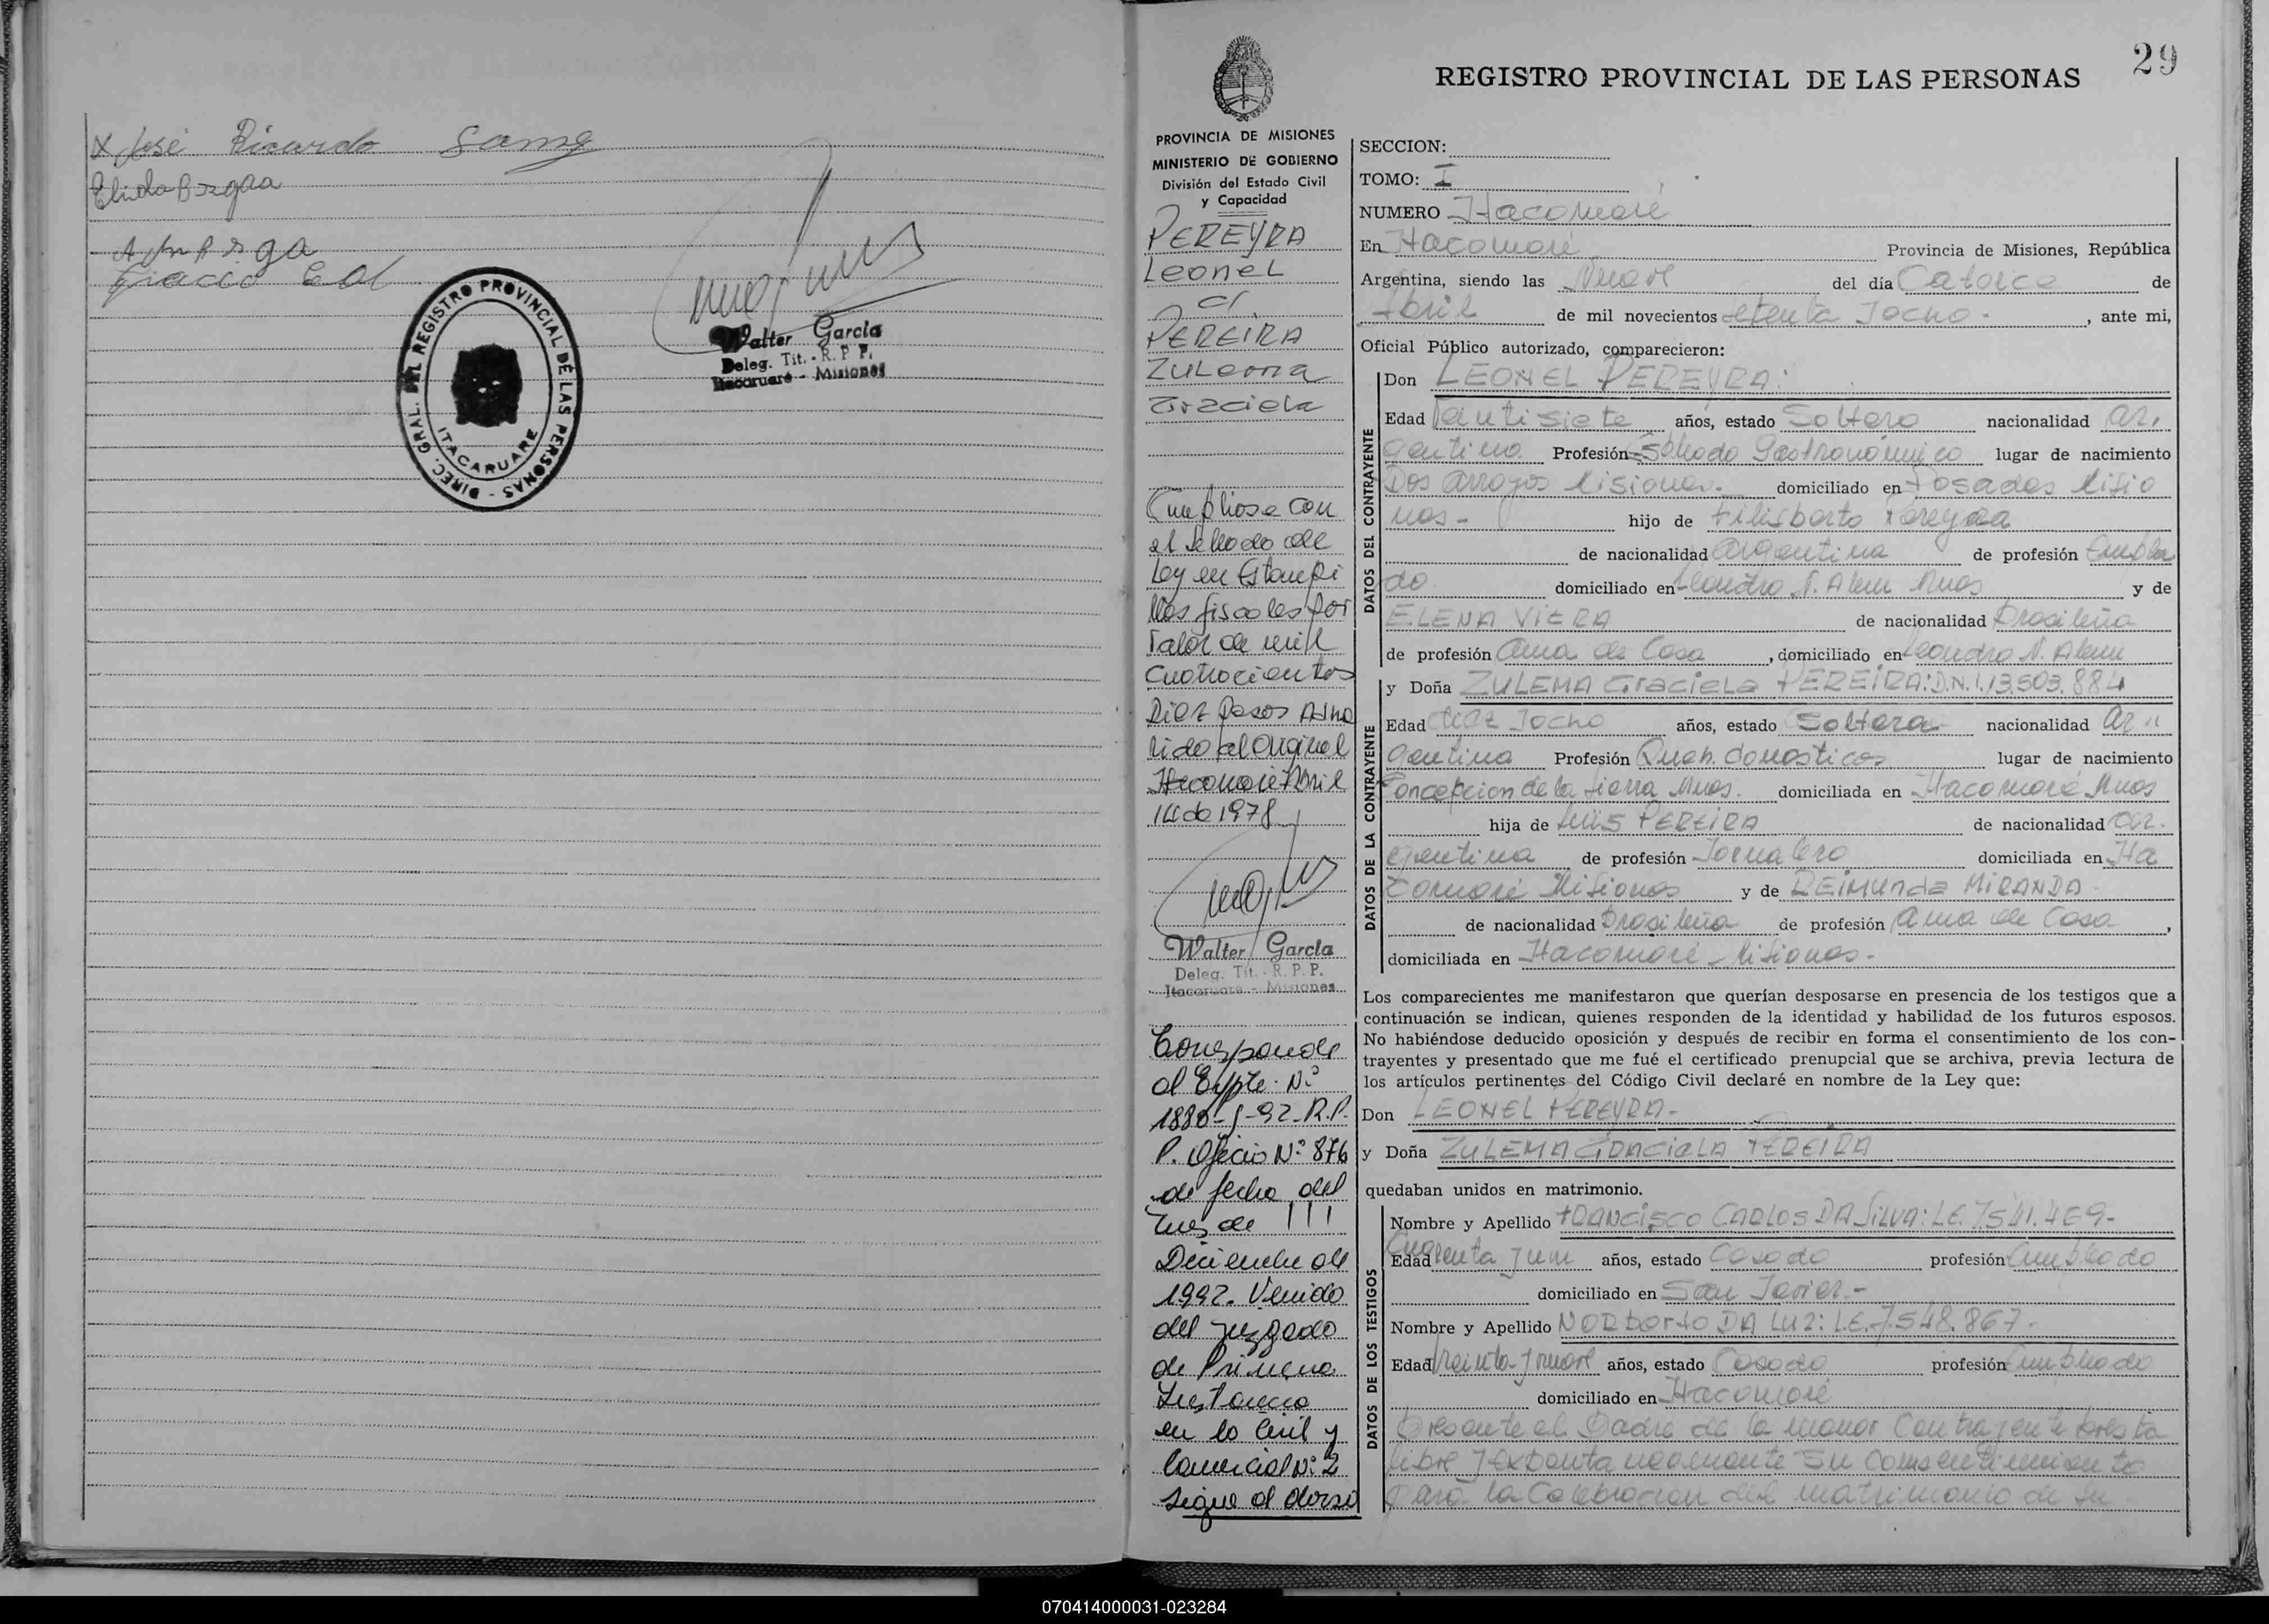 x José Ricardo
Elida
REGISTRO PROVINCIAL DE LAS PERSONAS
DIREC. GRAL. DEL REGISTRO PROVINCIAL DE LAS PERSONAS -
ITACARUARE
Walter García
Deleg. Tit. - R. P. P.
Itacaruaré - Misiones
29
REGISTRO PROVINCIAL DE LAS PERSONAS
PROVINCIA DE MISIONES
MINISTERIO DE GOBIERNO
División del Estado Civil
y Capacidad
PEREYRA
Leonel
c/.
PEREIRA
Zulema
Graciela
Cumpliose con
el sellado de
Ley en Estampi
llas fiscales por
Valor de mil
Cuatrocientos
Diez Pesos Adhe
rido al Original
Itacaruaré Abril
14 de 1978
Walter García
Deleg. Tit. - R. P. P.
Itacaruare - Misiones
Corresponde
al Expte. Nº
1880-J-92-R.P.
P. Oficio Nº 876
de fecha del
mes de
Diciembre de
1992. Venido
del Juzgado
de Primera
Instancia
en lo Civil y
Comercial Nº 2
Sigue al dorso
SECCION:
TOMO: I
NUMERO Itacaruaré
En Itacaruaré Provincia de Misiones, República
Argentina, siendo las Nueve del día Catorce de
Abril de mil novecientos setenta y ocho - , ante mi,
Oficial Público autorizado, comparecieron:
DATOS DEL CONTRAYENTE
Don LEONEL PEREYRA:
Edad Veintisiete años, estado Soltero nacionalidad Ar,
gentina Profesión Empleado Gastronómico lugar de nacimiento
Dos Arroyos Misiones. domiciliado en Posadas Misio
nes - hijo de Filisberto Pereyra
de nacionalidad Argentina de profesión Emplea
do domiciliado en Leandro N. Alem Mnes y de
ELENA VIERA de nacionalidad Brasileña
de profesión Ama de Casa , domiciliado en Leandro N. Alem
DATOS DE LA CONTRAYENTE
y Doña ZULEMA Graciela PEREIRA: D.N.I. 13.503.884
Edad diez y ocho años, estado Soltera nacionalidad Ar "
gentina Profesión Queh. domesticos lugar de nacimiento
Concepcion de la sierra Mnes. domiciliada en Itacaruaré Mnes
hija de Luis PEREIRA de nacionalidad Ar.
gentina de profesión Jornalero domiciliada en Ita
caruaré Misiones y de REIMUNDA MIRANDA
de nacionalidad Brasileña de profesión Ama de Casa ,
domiciliada en Itacaruaré - Misiones -
Los comparecientes me manifestaron que querían desposarse en presencia de los testigos que a
continuación se indican, quienes responden de la identidad y habilidad de los futuros esposos.
No habiéndose deducido oposición y después de recibir en forma el consentimiento de los con-
trayentes y presentado que me fué el certificado prenupcial que se archiva, previa lectura de
los artículos pertinentes del Código Civil declaré en nombre de la Ley que:
Don LEONEL PEREYRA-
y Doña ZULEMA GRACIELA PEREIRA
quedaban unidos en matrimonio.
DATOS DE LOS TESTIGOS
Nombre y Apellido FRANCISCO CARLOS DA SILVA: L.E. 7.541.469-
Edad Cuarenta y un años, estado Casado profesión Empleado
domiciliado en San Javier -
Nombre y Apellido NORberto DA LUZ: L.E. 7.548.867-
Edad treinta y nueve años, estado Casado profesión Empleado
domiciliado en Itacaruaré
Presente el Padre de la menor Contrayente presta
libre y expontaneamente su consentimiento
para la Celebracion del matrimonio de su
070414000031-023284